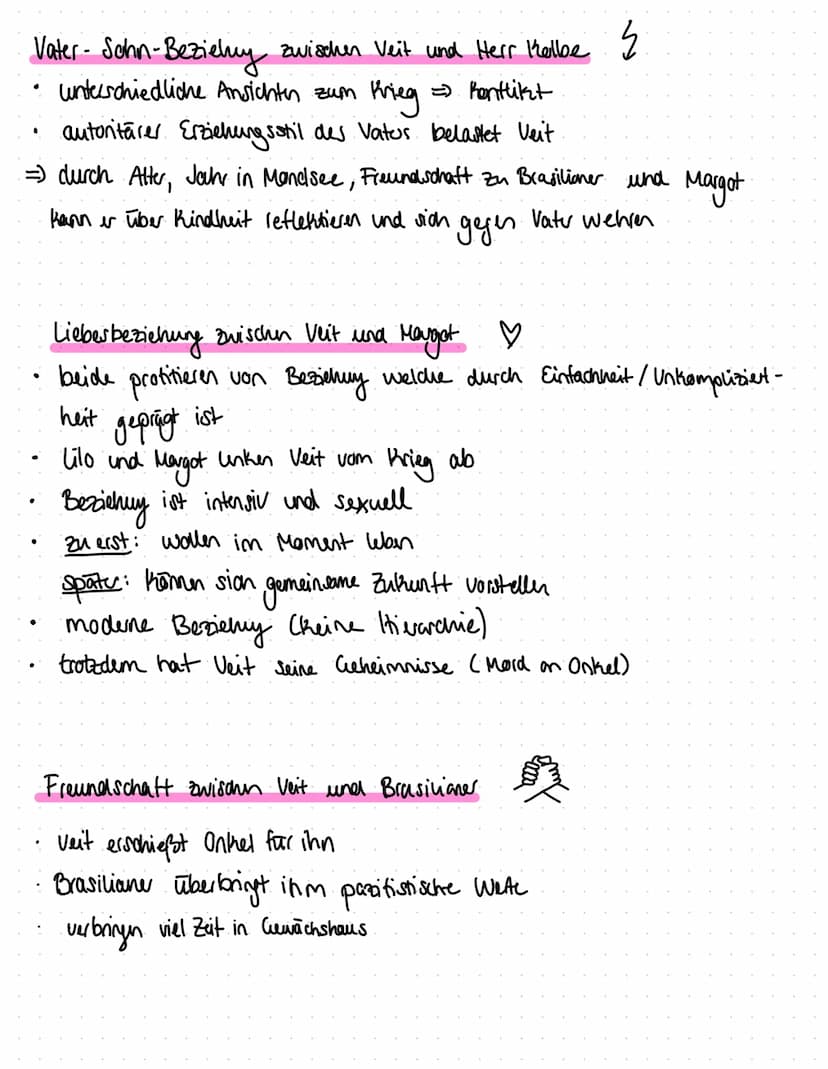 Vater-Sohn-Beziehung zwischen Veit und Herr Kolbe
• unterschiedliche Ansichten zum Krieg ⇒ Konflikt
• autoritärer Erziehungsstil des Vaters belastet Veit
⇒ durch Alter, Jahr in Mondsee, Freundschaft zu Brasilianer und Margot
kann er über Kindheit reflektieren und sich gegen Vater wehren
Liebesbeziehung zwischen Veit und Margot ♡
• beide profitieren von Beziehung welche durch Einfachheit / Unkompliziert-
heit geprägt ist
• Lilo und Margot lenken Veit vom Krieg ab
• Beziehung ist intensiv und sexuell
• zu erst: wollen im Moment leben
später: können sich gemeinsame Zukunft vorstellen
• moderne Beziehung (keine Hierarchie)
• trotzdem hat Veit seine Geheimnisse (Mord an Onkel)
Freundschaft zwischen Veit und Brasilianer
• Veit erschießt Onkel für ihn
• Brasilianer überbringt ihm pazifistische Werte
• verbringen viel Zeit in Gewächshaus